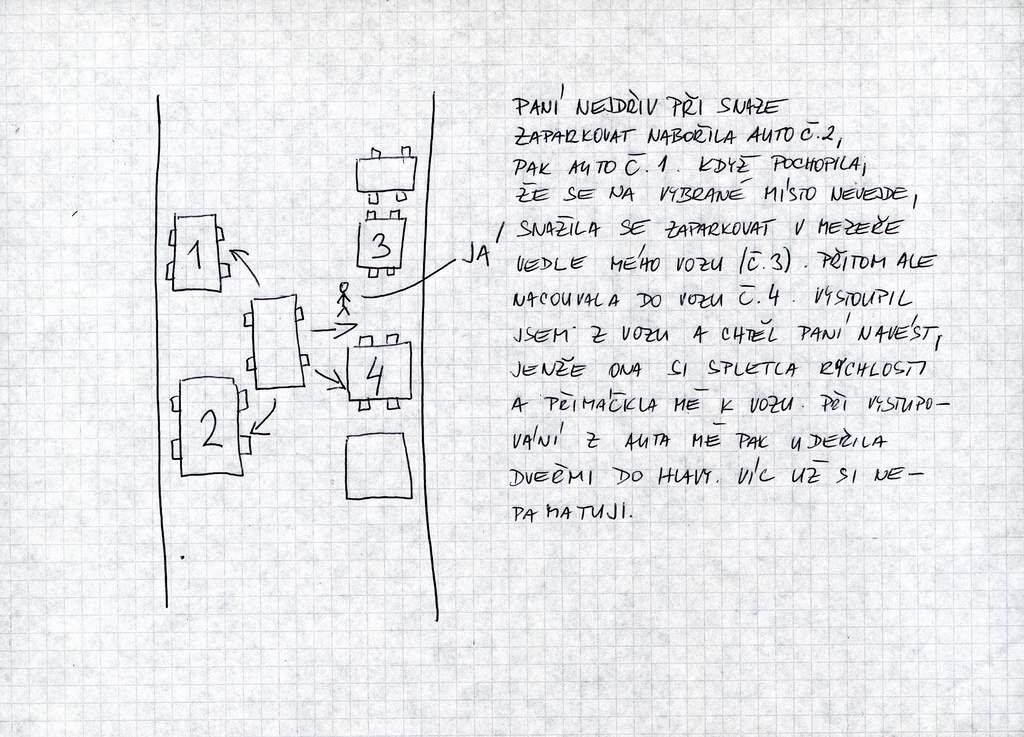 1
2
3
4
JÁ
PANÍ NEJDŘÍV PŘI SNAZE
ZAPARKOVAT NABOŘILA AUTO Č.2,
PAK AUTO Č.1. KDYŽ POCHOPILA,
ŽE SE NA VYBRANÉ MÍSTO NEVEJDE,
SNAŽILA SE ZAPARKOVAT V MEZEŘE
VEDLE MÉHO VOZU (Č.3). PŘITOM ALE
NACOUVALA DO VOZU Č.4. VYSTOUPIL
JSEM Z VOZU A CHTĚL PANÍ NAVÉST,
JENŽE ONA SI SPLETLA RYCHLOSTI
A PŘIMÁČKLA MĚ K VOZU. PŘI VYSTUPO-
VÁNÍ Z AUTA MĚ PAK UDEŘILA
DVEŘMI DO HLAVY. VÍC UŽ SI NE-
PAMATUJI.